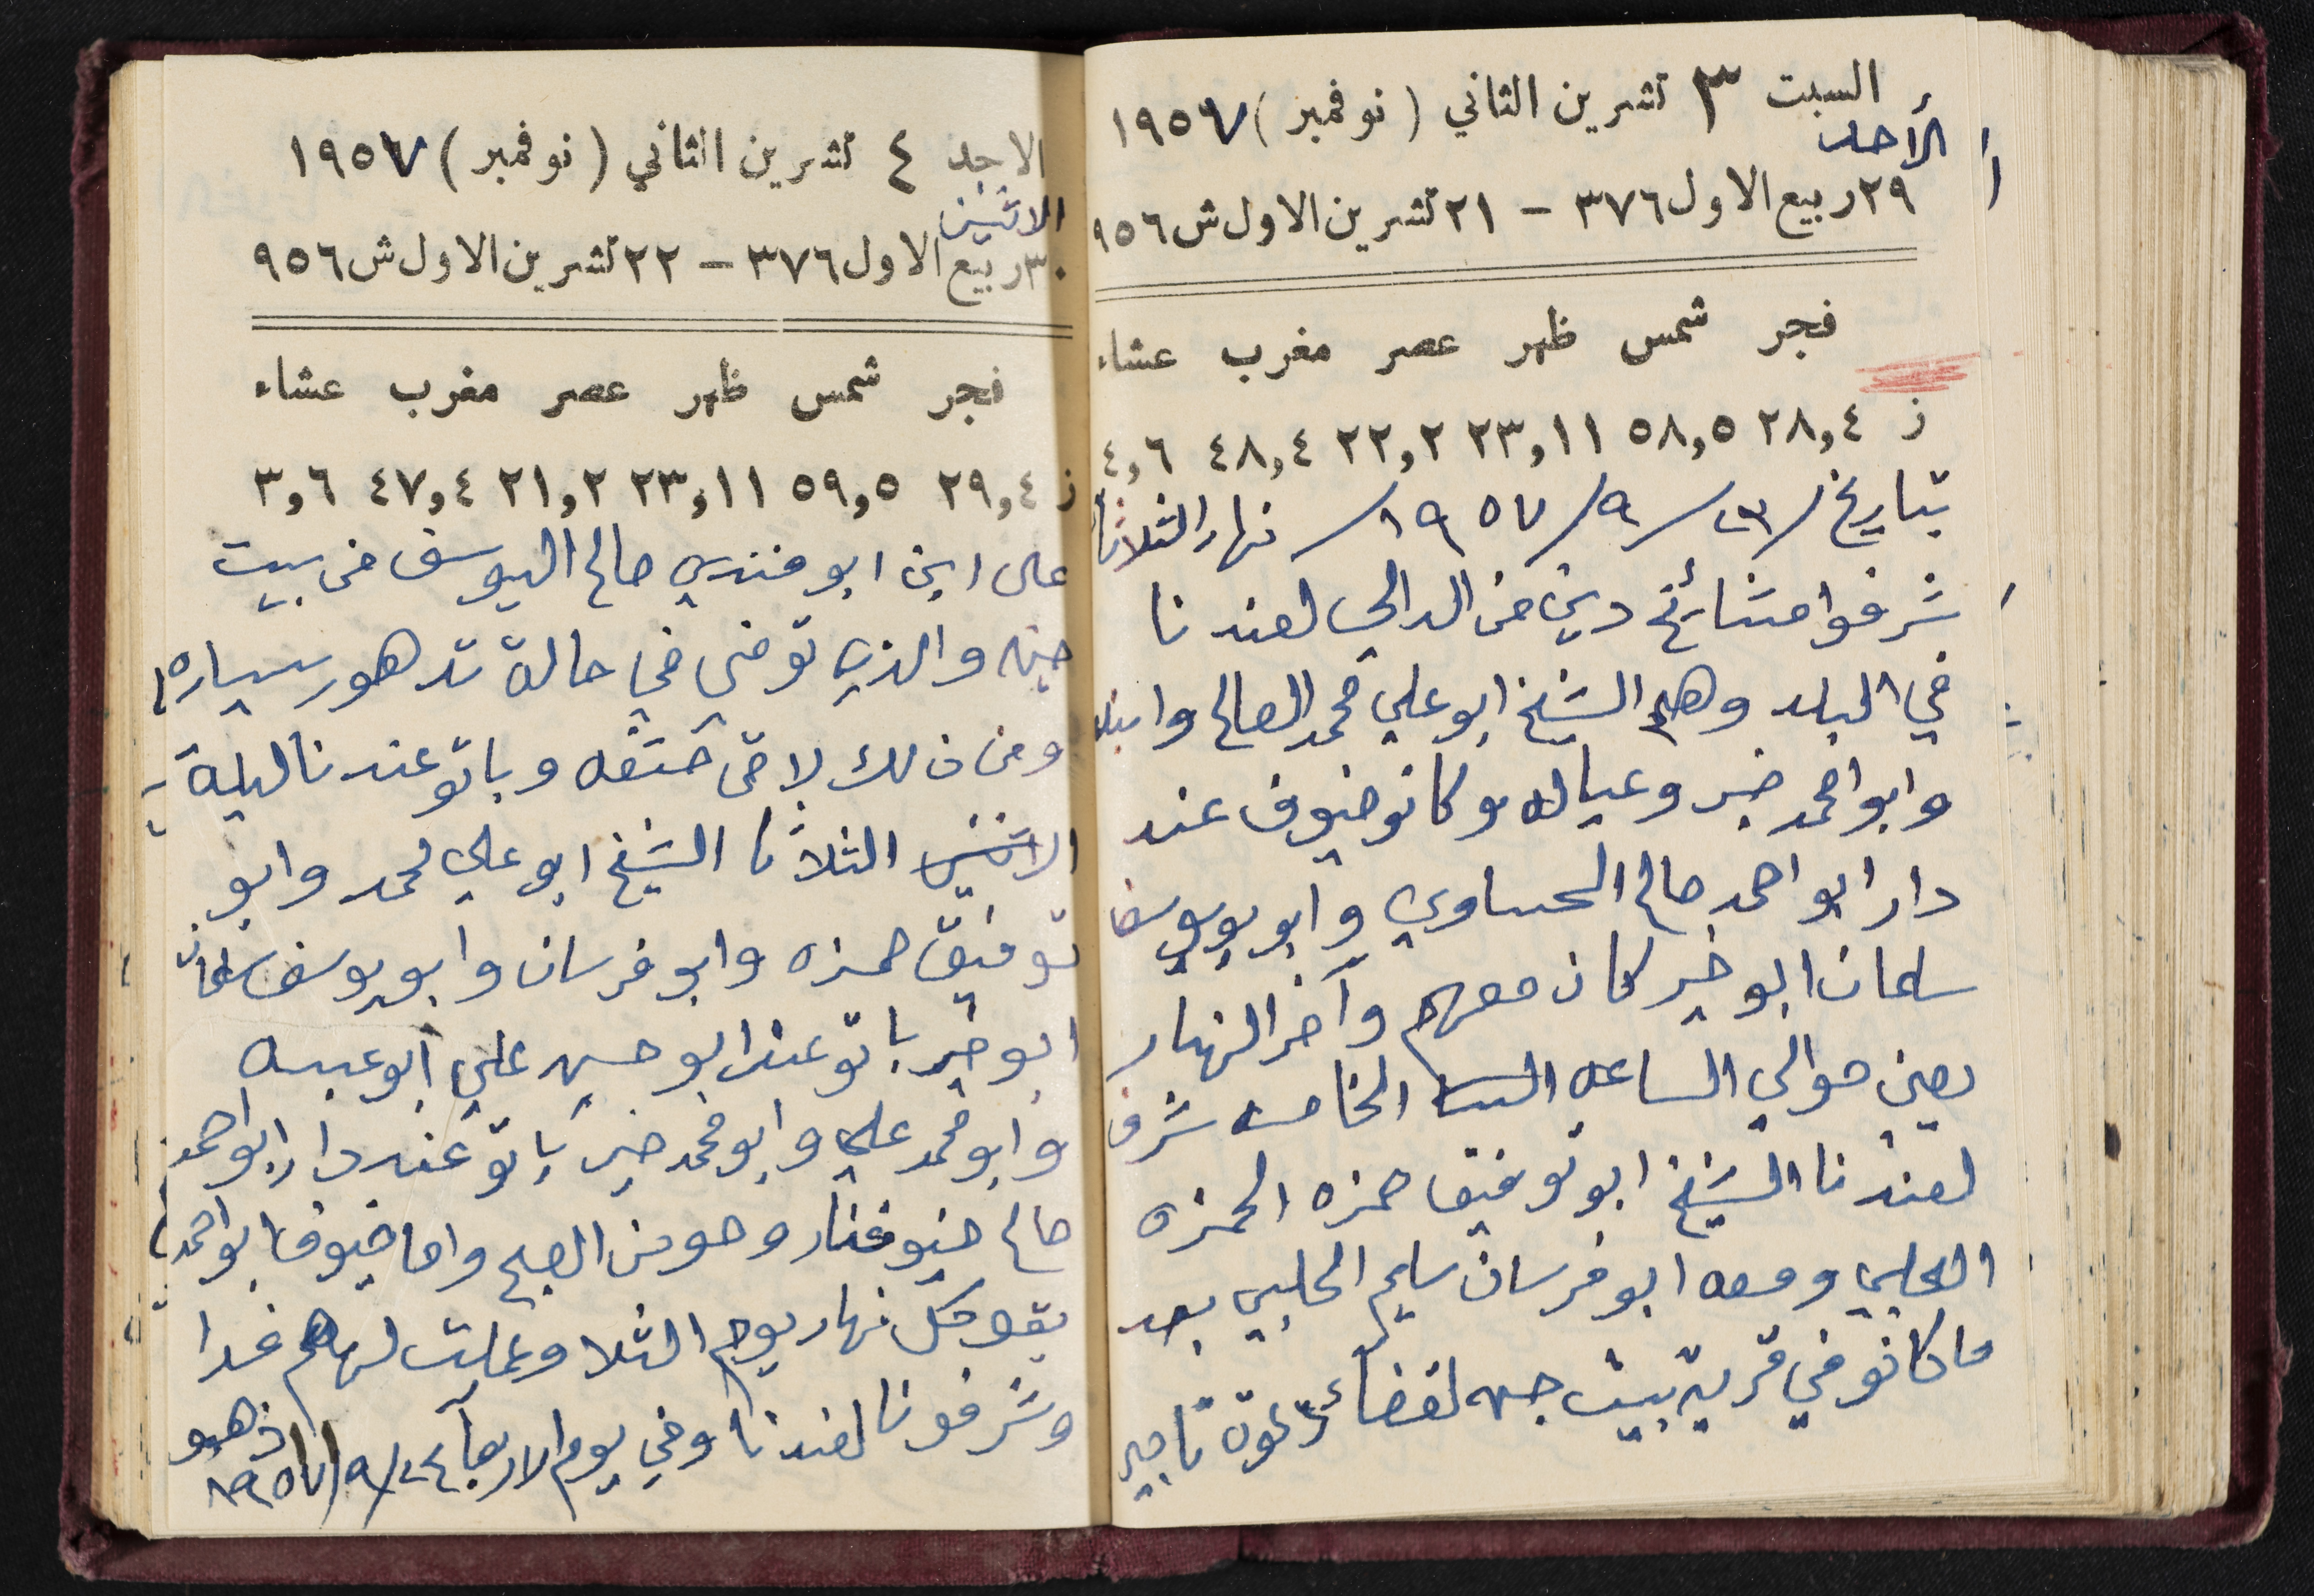 السبت ٣ تشرين الثاني (نوفمبر) ١٩٥٧
الأحد
٢٩ ربيع الاول ٣٧٦ - ٢١ تشرين الاول ش ٩٥٦
فجر شمس ظهر عصر مغرب عشاء
ز ٢٨,٤ ٥٨,٥ ٢٣,١١ ٢٢,٢ ٤٨,٤ ٤,٦
بتاريخ /٢٣/ ٩/ ١٩٥٧/ نهار الثلاثا
شرفوا مشائخ دين من الدالي لعندنا
في البلد وهم الشيخ ابو علي محمد الصالح وابنه
وابو محمد خير وعياله وكانو ضيوف عند
دار ابو احمد صالح الحساوي وابو يوسف
سلمان ابو خير كان معهم وآخر النهار
يعني حوالي الساعه الخامسه شرف
لعندنا الشيخ ابو توفيق حمزه الحمزه
الحلبي ومعه ابو فرسان سليم الحلبي بعد
ما كانو في قرية بيت جن لقضا دعوة تابير
الاحد ٤ تشرين الثاني (نوفمبر) ١٩٥٧
الاثنين
٣٠ ربيع الاول ٣٧٦ - ٢٢ تشرين الاول ش ٩٥٦
فجر شمس ظهر عصر مغرب عشاء
ز ٢٩,٤ ٥٩,٥ ٢٣,١١ ٢١,٢ ٤٧,٤ ٣,٦
على ابن ابو فندي صالح اليوسف من بيت
جنه والذي توفي في حالة تدهور سياره
ومن ذلك لاقى حتفه وباتو عندنا ليلة
الاثنين الثلاثا الشيخ ابو علي محمد وابو
توفيق حمزه وابو فرسان وابو يوسف سلمان
ابو خير باتو عند ابو حسن علي ابو عبسه
وابو محمد علي وابو محمد خير باتو عند دار ابو احمد
صالح ضيوفنا روحو من الصبح واما ضيوف ابو احمد
بقو كل نهار يوم الثلا وعملت لهم غدا
وشرفونا لعندنا وفي يوم الاربعا ٢٤/ ٩/ ١٩٥٧ ذهبو